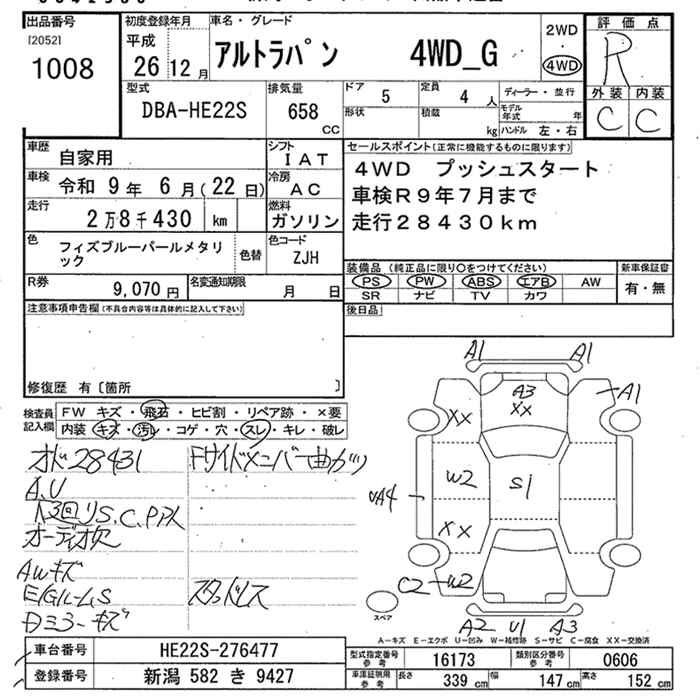 出品番号
[2052]
1008
初度登録年月
平成
26 12 月
車名・グレード
アルトラパン 4WD_G
2WD
・
4WD
評価点
R
外装 内装
C C
型式
DBA-HE22S
排気量
658
CC
ドア
5
形状
定員
4 人
積載
kg
ディーラー・並行
モデル年式 年
ハンドル 左・右
車歴
自家用
シフト
IAT
車検
令和 9年 6月(22日)
冷房
AC
走行
2万8千430 km
燃料
ガソリン
色
フィズブルーパールメタリ
ック
色替
色コード
ZJH
R券
9,070 円
名変通知期限
月 日
セールスポイント(正常に機能するものに限ります)
4WD プッシュスタート
車検R9年7月まで
走行28430km
装備品 (純正品に限り○をつけてください)
PS PW ABS エアB AW
SR ナビ TV カワ
新車保証書
有・無
後日品
注意事項申告欄(不具合内容等は具体的に記入して下さい)
修復歴 有〔箇所 〕
検査員
記入欄
FW キズ・飛石・ヒビ割・リペア跡・×要
内装 キズ・汚レ・コゲ・穴・スレ・キレ・破レ
オド28431
A.U
S.C.P穴
オーディオ欠
AWキズ
Dミラーキズ
Fサイドメンバー曲がり
スタッドレス
A1 A1
A3
XX
A1
XX
W2
S1
A4
XX
C2 W2
A2 U1 A3
スペア
A-キズ E-エクボ U-凹み W-補修跡 S-サビ C-腐食 XX-交換済
車台番号
HE22S-276477
登録番号
新潟 582 き 9427
型式指定番号
参考
16173
類別区分番号
参考
0606
車庫証明用
参考
長さ 339 cm
幅 147 cm
高さ 152 cm